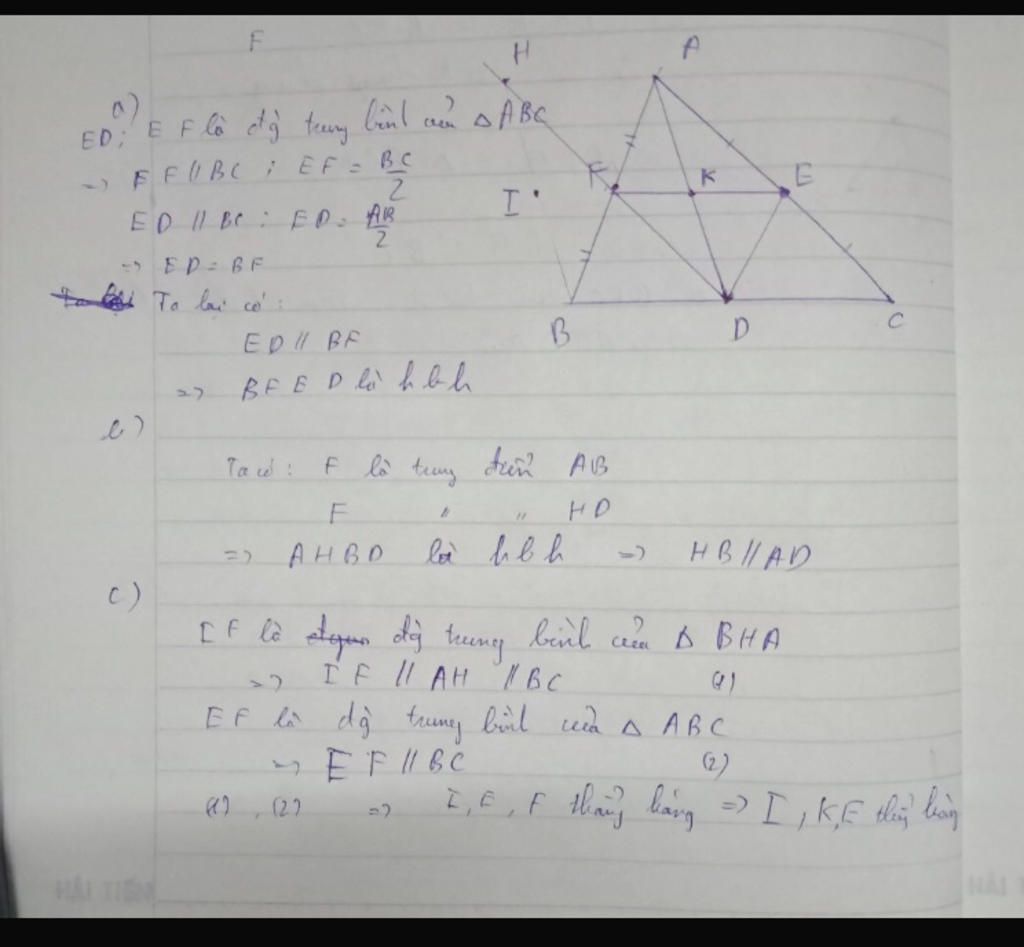 F
H
A
a)
ED; EF là đg̀ trung bình của △ABC
=> EF // BC ; EF = BC/2
F
K
E
I
ED // BC ; ED = AB/2
=> ED = BF
Ta lại có :
B
D
C
ED // BF
=> BFED là hbh
b)
Ta có : F là trung điểm AB
F " " HD
=> AHBD là hbh => HB // AD
c)
IF là đg̀ trung bình của △ BHA
=> IF // AH // BC (1)
EF là đg̀ trung bình của △ ABC
=> EF // BC (2)
(1) , (2) => I, E, F thẳng hàng => I, K, E thẳng hàng
HẢI TIẾN
HẢI